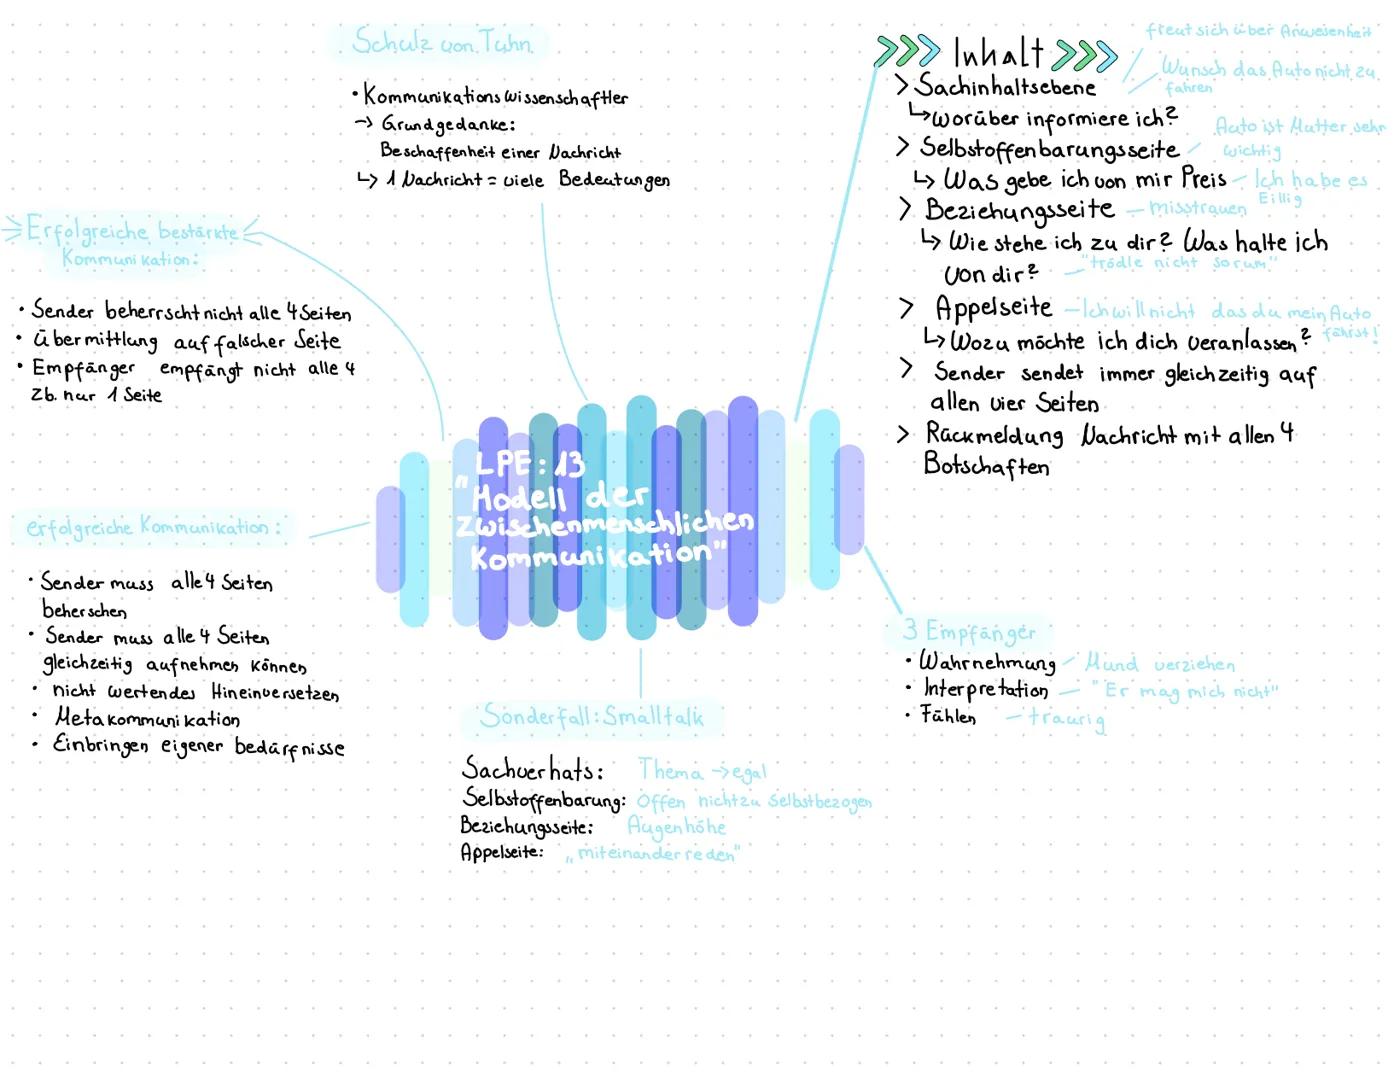 Schulz von Tuhn
• Kommunikationswissenschaftler
→ Grundgedanke:
Beschaffenheit einer Nachricht
↳ 1 Nachricht = viele Bedeutungen
Erfolgreiche bestärkte
Kommunikation:
• Sender beherrscht nicht alle 4 Seiten
• übermittlung auf falscher Seite
• Empfänger empfängt nicht alle 4
zb. nur 1 Seite
erfolgreiche Kommunikation:
• Sender muss alle 4 Seiten
beherschen
• Sender muss alle 4 Seiten
gleichzeitig aufnehmen können
• nicht wertendes Hineinversetzen
• Metakommunikation
• Einbringen eigener bedürfnisse
LPE: 13
"Modell der
zwischenmenschlichen
Kommunikation"
Sonderfall: Smalltalk
Sachverhats: Thema → egal
Selbstoffenbarung: Offen nicht zu selbstbezogen
Beziehungsseite: Augenhöhe
Appelseite: „miteinander reden"
>>> Inhalt >>>
freut sich über Anwesenheit
Wunsch das Auto nicht zu
fahren
> Sachinhaltsebene
↳ worüber informiere ich?
Auto ist Mutter sehr
wichtig
> Selbstoffenbarungsseite
↳ Was gebe ich von mir Preis – Ich habe es
Eillig
> Beziehungsseite – misstrauen
↳ Wie stehe ich zu dir? Was halte ich
von dir? – "trödle nicht so rum"
> Appelseite – Ich will nicht das du mein Auto
fährst!
↳ Wozu möchte ich dich veranlassen?
> Sender sendet immer gleichzeitig auf
allen vier Seiten
> Rückmeldung Nachricht mit allen 4
Botschaften
3 Empfänger
• Wahrnehmung – Mund verziehen
• Interpretation – "Er mag mich nicht"
• Fühlen – traurig